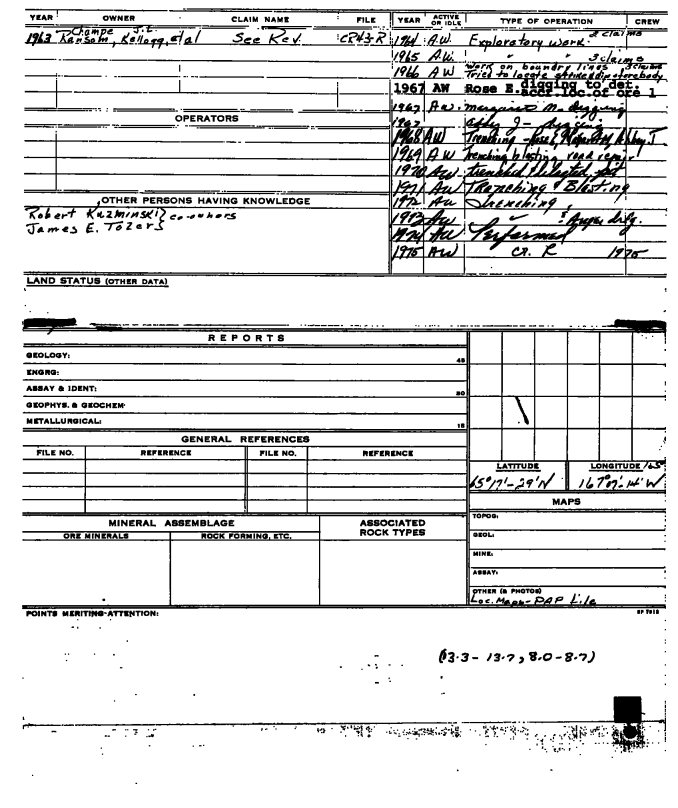 YEAR OWNER CLAIM NAME FILE YEAR ACTIVE OR IDLE TYPE OF OPERATION CREW
Champe J.L.
1963 Ransom, Kellogg, etal See Rev. CR43-R
1964 A.W. Exploratory work. 2 claims
1965 A.W. " " 3 claims
1966 AW Work on boundry lines 3 claims
Tried to locate strike & dip of orebody
1967 AW Rose E. digging to det.
accr.loc.of ore 1
1967 A.W. Margaret M. digging
1967 Abby J - digging
1968 AW Trenching - Rose E, Margaret M, Abbey J
1969 AW Trenching blasting road repair
1970 AW trenched blasted pit
1971 AW Trenching & Blasting
1972 AW Trenching,
1973 AW " & Auger drlg.
1974 AW Performed
1975 AW CR. R 1975
OPERATORS
OTHER PERSONS HAVING KNOWLEDGE
Robert Kuzminski } co-owners
James E. Tozer }
LAND STATUS (OTHER DATA)
REPORTS
GEOLOGY: 45
ENGRG:
ASSAY & IDENT: 30
GEOPHYS. & GEOCHEM.
METALLURGICAL: 15
GENERAL REFERENCES
FILE NO. REFERENCE FILE NO. REFERENCE
LATITUDE LONGITUDE 165°
65°17'-29'N 167°07'-14'W
MAPS
TOPOG:
GEOL:
MINE:
ASSAY:
OTHER (& PHOTOS)
Loc. Maps- PAP file
MINERAL ASSEMBLAGE ASSOCIATED ROCK TYPES
ORE MINERALS ROCK FORMING, ETC.
POINTS MERITING ATTENTION:
(13.3 - 13.7, 8.0 - 8.7)